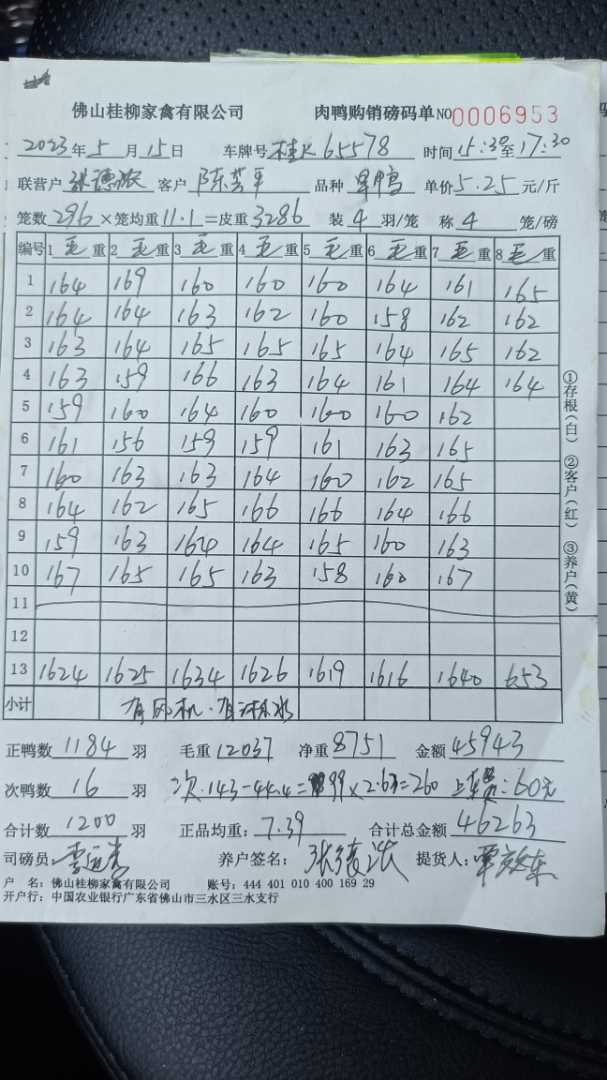 佛山桂柳家禽有限公司 肉鸭购销磅码单 NO 0006953
2023年5月15日 车牌号 桂K65578 时间 15:30至17:30
联营户 客户 陈芸平 品种 鸭 单价5.25元/斤
笼数296×笼均重11.1=皮重3286 装4羽/笼 称4笼/磅
编号 1毛重 2毛重 3毛重 4毛重 5毛重 6毛重 7毛重 8毛重
1 164 169 160 160 160 164 161 165
2 164 164 163 162 160 158 162 162
3 163 164 165 165 165 164 165 162
4 163 159 166 163 164 161 164 164
5 159 160 164 160 160 160 162
6 161 156 159 159 161 163 165
7 160 163 163 164 160 162 165
8 164 162 165 166 166 164 166
9 159 163 164 164 165 160 163
10 167 165 165 163 158 160 167
11
12
13 1624 1625 1634 1626 1619 1616 1640 653
小计 有风机·有淋水
正鸭数1184羽 毛重12037 净重8751 金额45943
次鸭数16羽 次.143-44.4=99×2.63=260 上车费:60元
合计数1200羽 正品均重:7.39 合计总金额46263
司磅员: 养户签名: 提货人:
户 名:佛山桂柳家禽有限公司 账号:444 401 010 400 169 29
开户行:中国农业银行广东省佛山市三水区三水支行
①存根(白) ②客户(红) ③养户(黄)